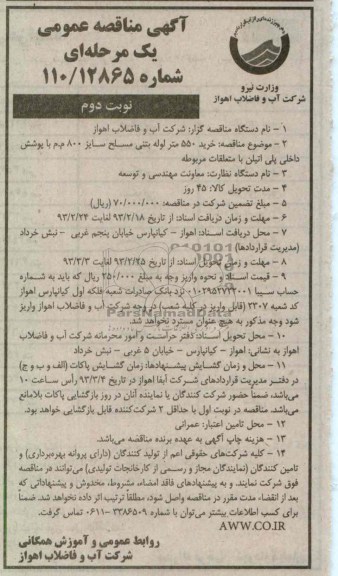 آگهی مناقصه عمومی
یک مرحله‌ای
شماره ۱۱۰/۱۲۸۶۵
وزارت نیرو
شرکت آب و فاضلاب اهواز
نوبت دوم
۱ – نام دستگاه مناقصه گزار: شرکت آب و فاضلاب اهواز
۲ – موضوع مناقصه: خرید ۵۵۰ متر لوله بتنی مسلح سایز ۸۰۰ م.م با پوشش
داخلی پلی اتیلن با متعلقات مربوطه
۳ – نام دستگاه نظارت: معاونت مهندسی و توسعه
۴ – مدت تحویل کالا: ۴۵ روز
۵ – مبلغ تضمین شرکت در مناقصه: ۷۰/۰۰۰/۰۰۰ (ریال)
۶ – مهلت و زمان دریافت اسناد: از تاریخ ۹۳/۲/۱۸ لغایت ۹۳/۲/۲۴
۷ – محل دریافت اسناد: اهواز – کیانپارس خیابان پنجم غربی – نبش خرداد
(مدیریت قراردادها)
۸ – مهلت و زمان تحویل اسناد: از تاریخ ۹۳/۲/۲۵ لغایت ۹۳/۳/۳
۹ – قیمت اسناد و نحوه واریز وجه به مبلغ ۲۵۰/۰۰۰ ریال که باید به شماره
حساب سیبا نزد بانک صادرات شعبه فلکه اول کیانپارس اهواز
کد شعبه ۲۳۰۷ (قابل واریز در کلیه شعب) در وجه شرکت آب و فاضلاب اهواز واریز
شود وجه مذکور به هیچ عنوان مسترد نخواهد شد.
۱۰ – محل تحویل اسناد: دفتر حراست و امور محرمانه شرکت آب و فاضلاب
اهواز به نشانی: اهواز – کیانپارس – خیابان ۵ غربی – نبش خرداد
۱۱ – محل و زمان گشایش پیشنهادها: زمان گشایش پاکات (الف و ب و ج)
در دفتر مدیریت قراردادهای شرکت آبفا اهواز در تاریخ ۹۳/۳/۴ رأس ساعت ۱۰
می‌باشد، ضمناً حضور شرکت کنندگان یا نماینده آنان در روز بازگشایی پاکات بلامانع
می‌باشد. مناقصه در نوبت اول با حداقل ۲ شرکت‌کننده قابل بازگشایی خواهد بود.
۱۲ – محل تامین اعتبار: عمرانی
۱۳ – هزینه چاپ آگهی به عهده برنده مناقصه می‌باشد.
۱۴ – کلیه شرکت‌های حقوقی اعم از تولید کنندگان (دارای پروانه بهره‌برداری) و
تامین کنندگان (نمایندگان مجاز و رسمی از کارخانجات تولیدی) می‌توانند در مناقصه
فوق شرکت نمایند. و به پیشنهادهای فاقد امضاء، مشروط، مخدوش و پیشنهاداتی که
بعد از انقضاء مدت مقرر در مناقصه واصل شود، مطلقاً ترتیب اثر داده نخواهد شد. ضمناً
برای کسب اطلاعات بیشتر می‌توان با شماره ۳۳۸۶۵۰۹–۰۶۱۱ تماس گرفت.
AWW.CO.IR
روابط عمومی و آموزش همگانی
شرکت آب و فاضلاب اهواز
ParsNamadData